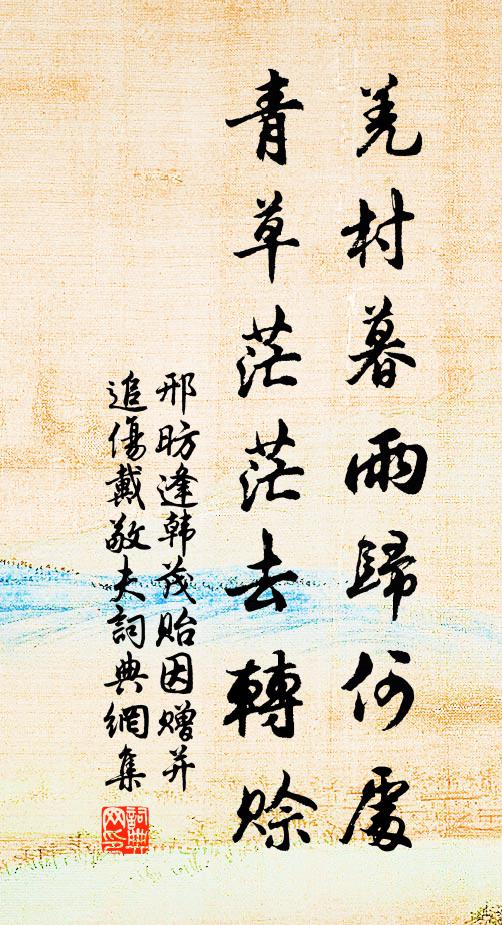 羌村暮雨歸何處
青草茫茫去轉賒
邢昉逢韩茂貽因赠并
追傷戴敬夫詞典網集
詞典
网印